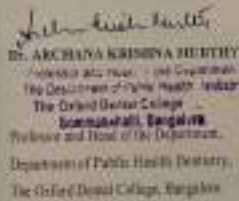 Dr. ARCHANA KRISHNA MURTHY
Professor and Head of the Department
The Department of Public Health Dentistry
The Oxford Dental College
Bommanahalli, Bangalore
Professor and Head of the Department,
Department of Public Health Dentistry,
The Oxford Dental College, Bangalore